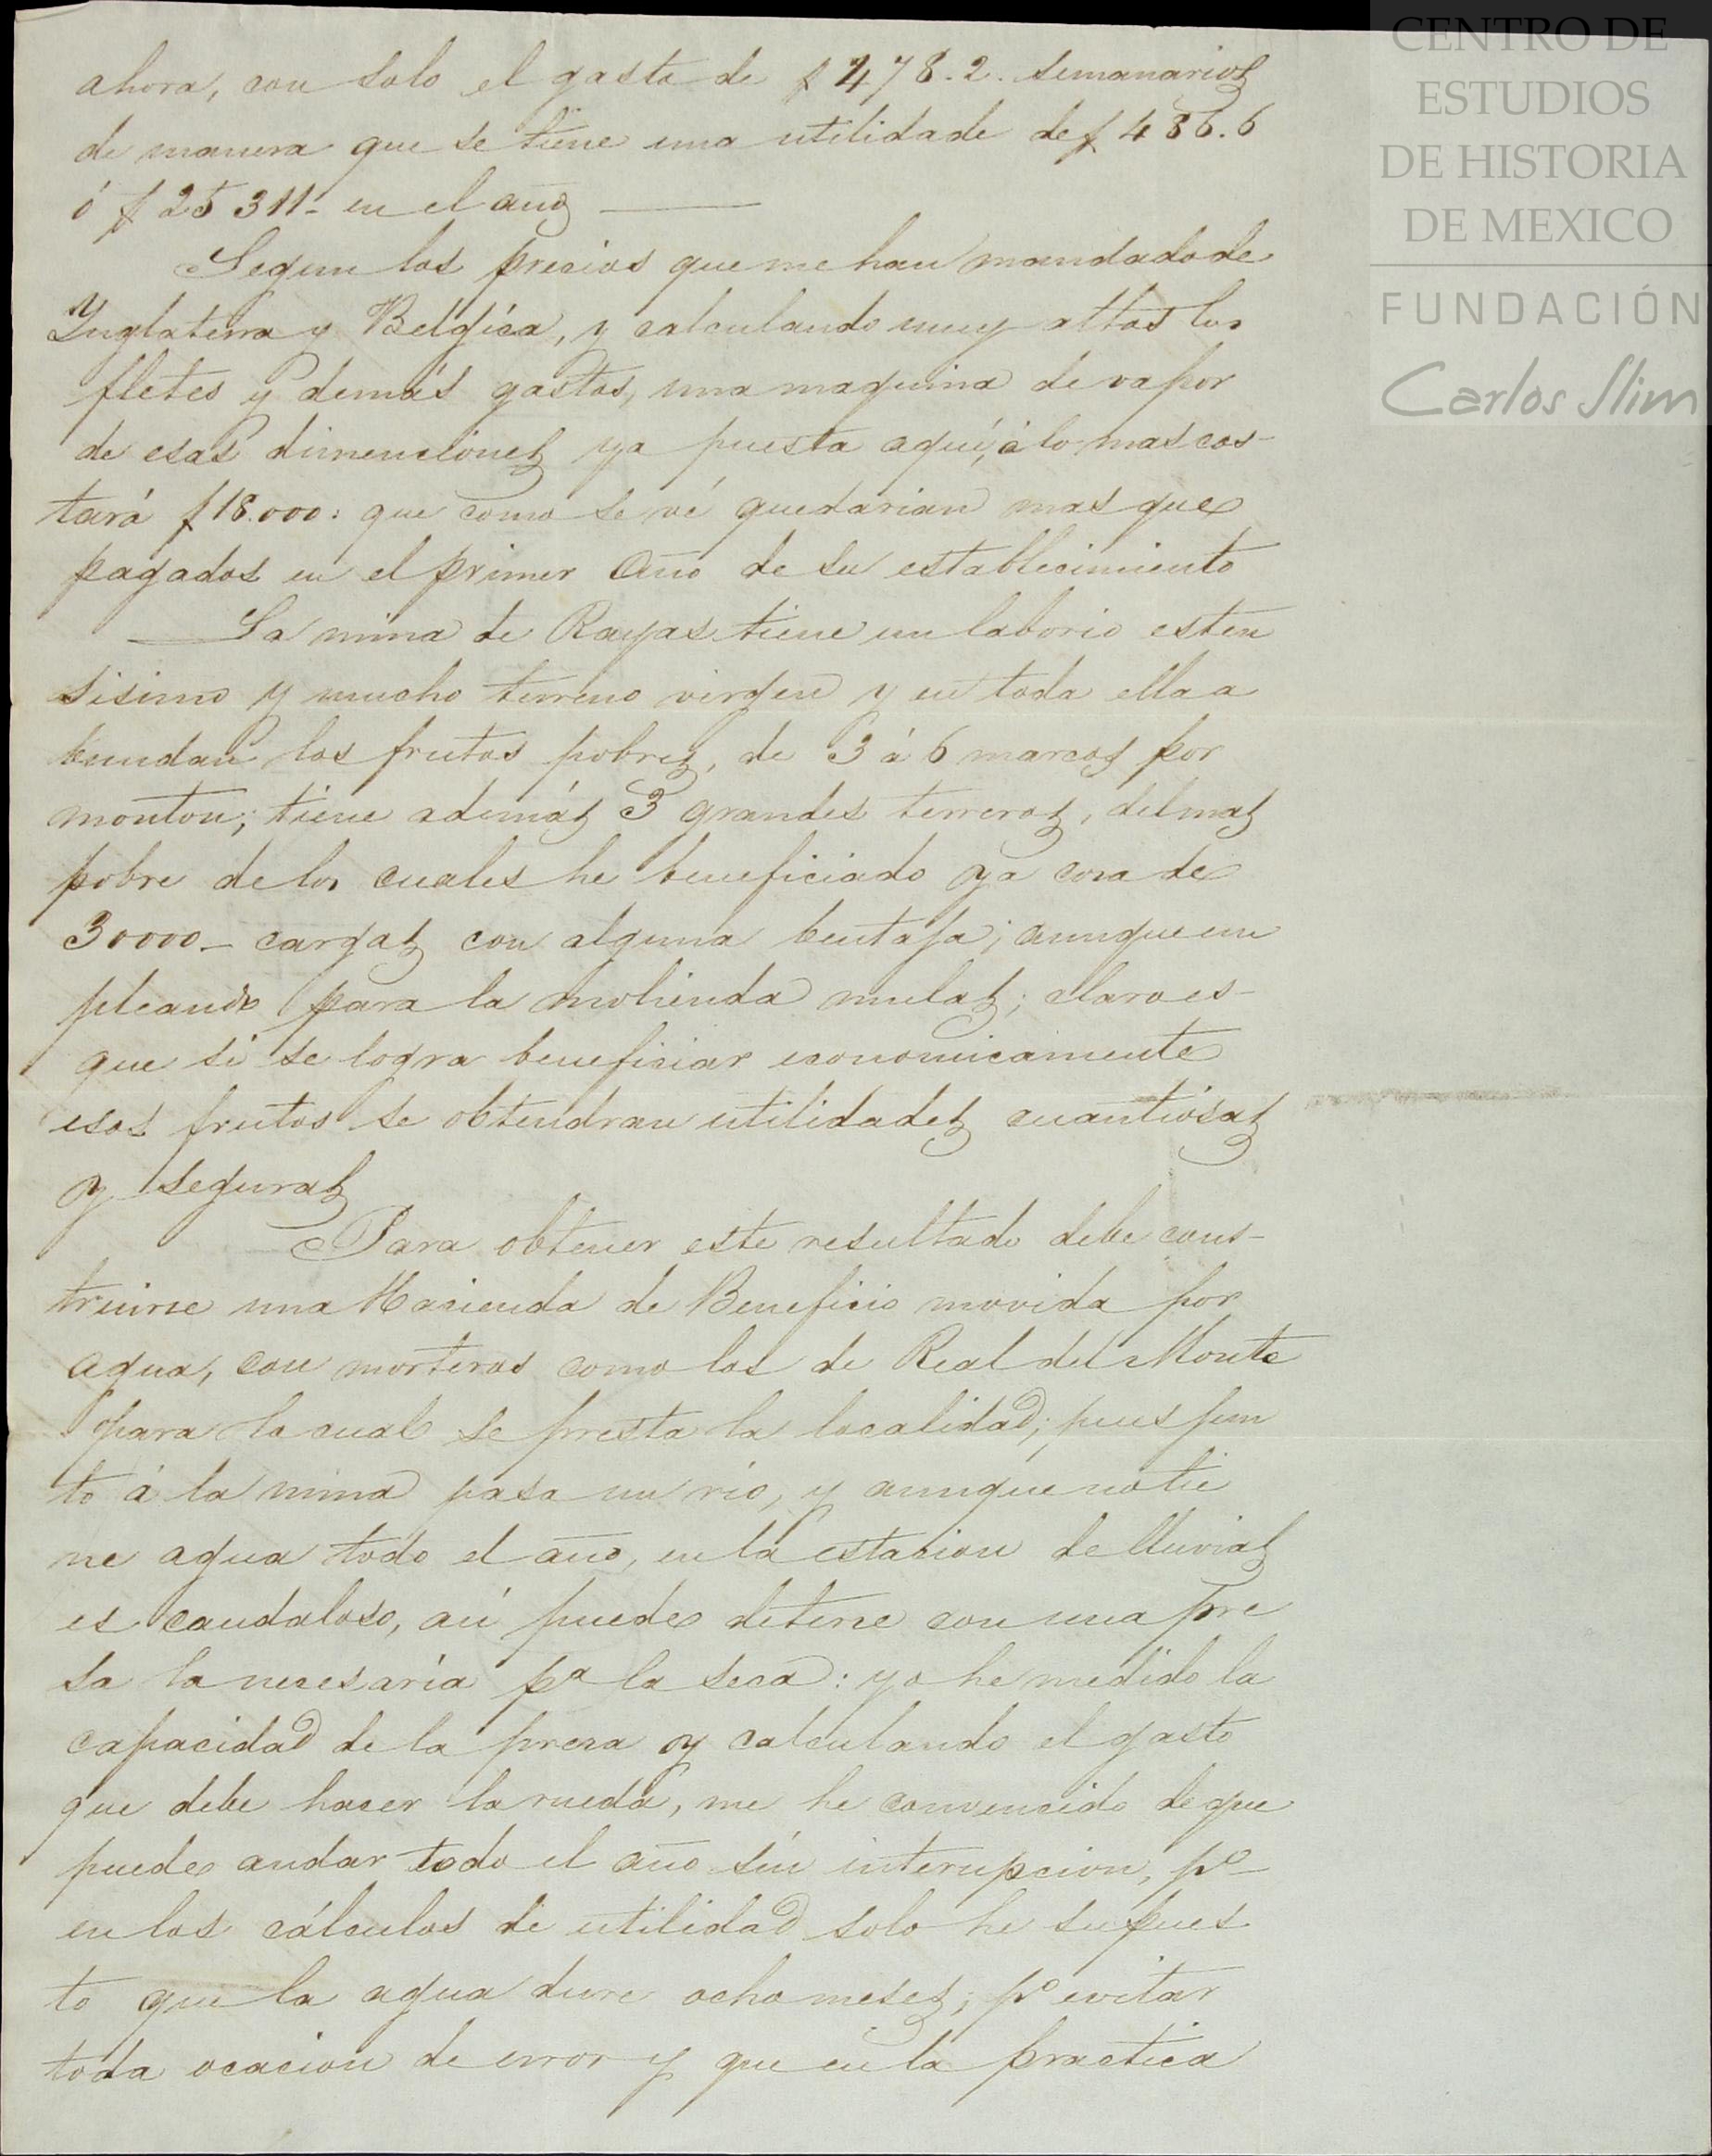 ahora, con solo el gasto de $ 478.2. semanarios
de manera que se tiene una utilidade de $ 486.6
ó $ 25 311- en el año
Segun los precios que me han mandado de
Ynglaterra y Belgica, y calculando muy altos los
fletes y demás gastos, una maquina de vapor
de esas dimenciones ya puesta aquí, á lo mas cos-
tará $ 18.000: que como se vé quedarian mas que
pagados en el primer año de su establecimiento
La mina de Rayas tiene un laborio esten
sisimo y mucho terreno virgen y en toda ella a
bundan los frutos pobres, de 3 á 6 marcos por
monton; tiene además 3 grandes terreros, del mas
pobre de los cuales he beneficiado ya cosa de
30000- cargas con alguna bentaja; aunque em
pleando para la molienda mulas; claro es-
que si se logra beneficiar economicamente
esos frutos se obtendran utilidades cuantiosas
y seguras
Para obtener este resultado debe cons-
truirse una Hacienda de Beneficio movida por
agua, con morteros como los de Real del Monte
para lo cual se presta la localidad; pues jun
to á la mina pasa un rio, y aunque no tie
ne agua todo el año, en la estacion de lluvias
es caudaloso, así puede deterse con una pre
sa la necesaria pa la seca: yo he medido la
capacidad de la presa y calculando el gasto
que debe hacer la rueda, me he convencido de que
puede andar todo el año sin interupcion, po
en los cálculos de utilidad solo he supues
to que la agua dure ocho meses; po evitar
toda ocacion de error y que en la practica
CENTRO DE
ESTUDIOS
DE HISTORIA
DE MEXICO
FUNDACIÓN
Carlos Slim